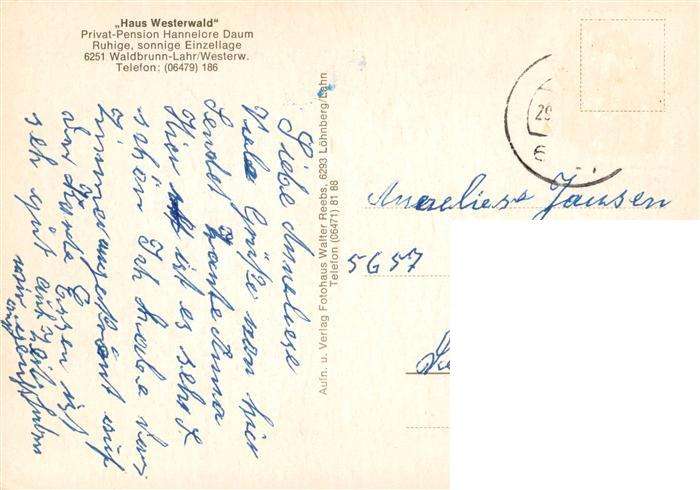 „Haus Westerwald"
Privat-Pension Hannelore Daum
Ruhige, sonnige Einzellage
6251 Waldbrunn-Lahr/Westerw.
Telefon: (06479) 186
Liebe Anneliese
Viele Grüße von hier
sendet Tante Anna
Hier ist es sehr
schön. Ich habe das
Zimmer auf
das Essen ist
sehr gut
Aufn. u. Verlag Fotohaus Walter Reebs, 6293 Löhnberg/Lahn
Telefon (06471) 81 88
29
6
Anneliese Jansen
5657